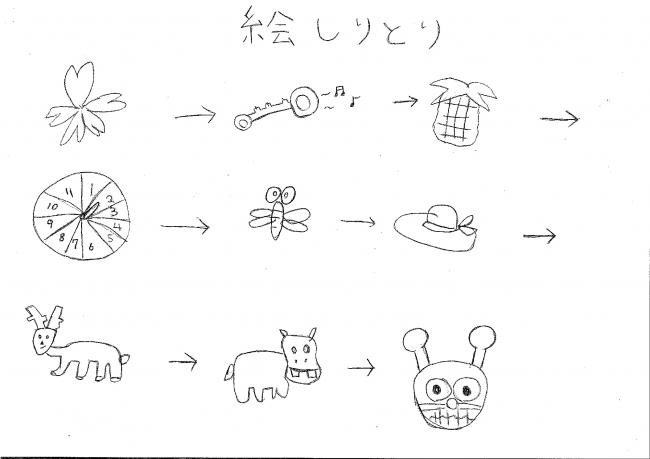 絵しりとり
11 1
10 2
9 3
8 4
7 6 5